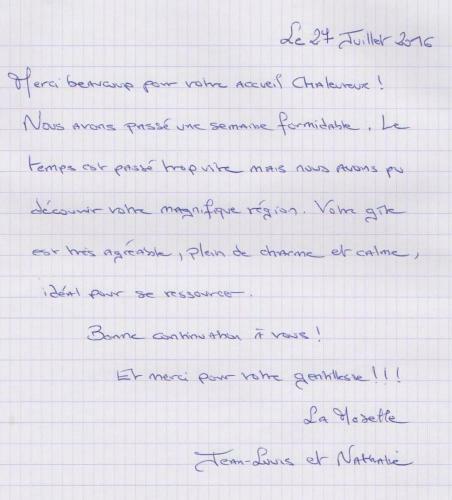 Le 27 Juillet 2016
Merci beaucoup pour votre accueil chaleureux !
Nous avons passé une semaine formidable. Le
temps est passé trop vite mais nous avons pu
découvrir votre magnifique région. Votre gîte
est très agréable, plein de charme et calme,
idéal pour se ressourcer.
Bonne continuation à vous !
Et merci pour votre gentillesse !!!
La Moselle
Jean-Louis et Nathalie